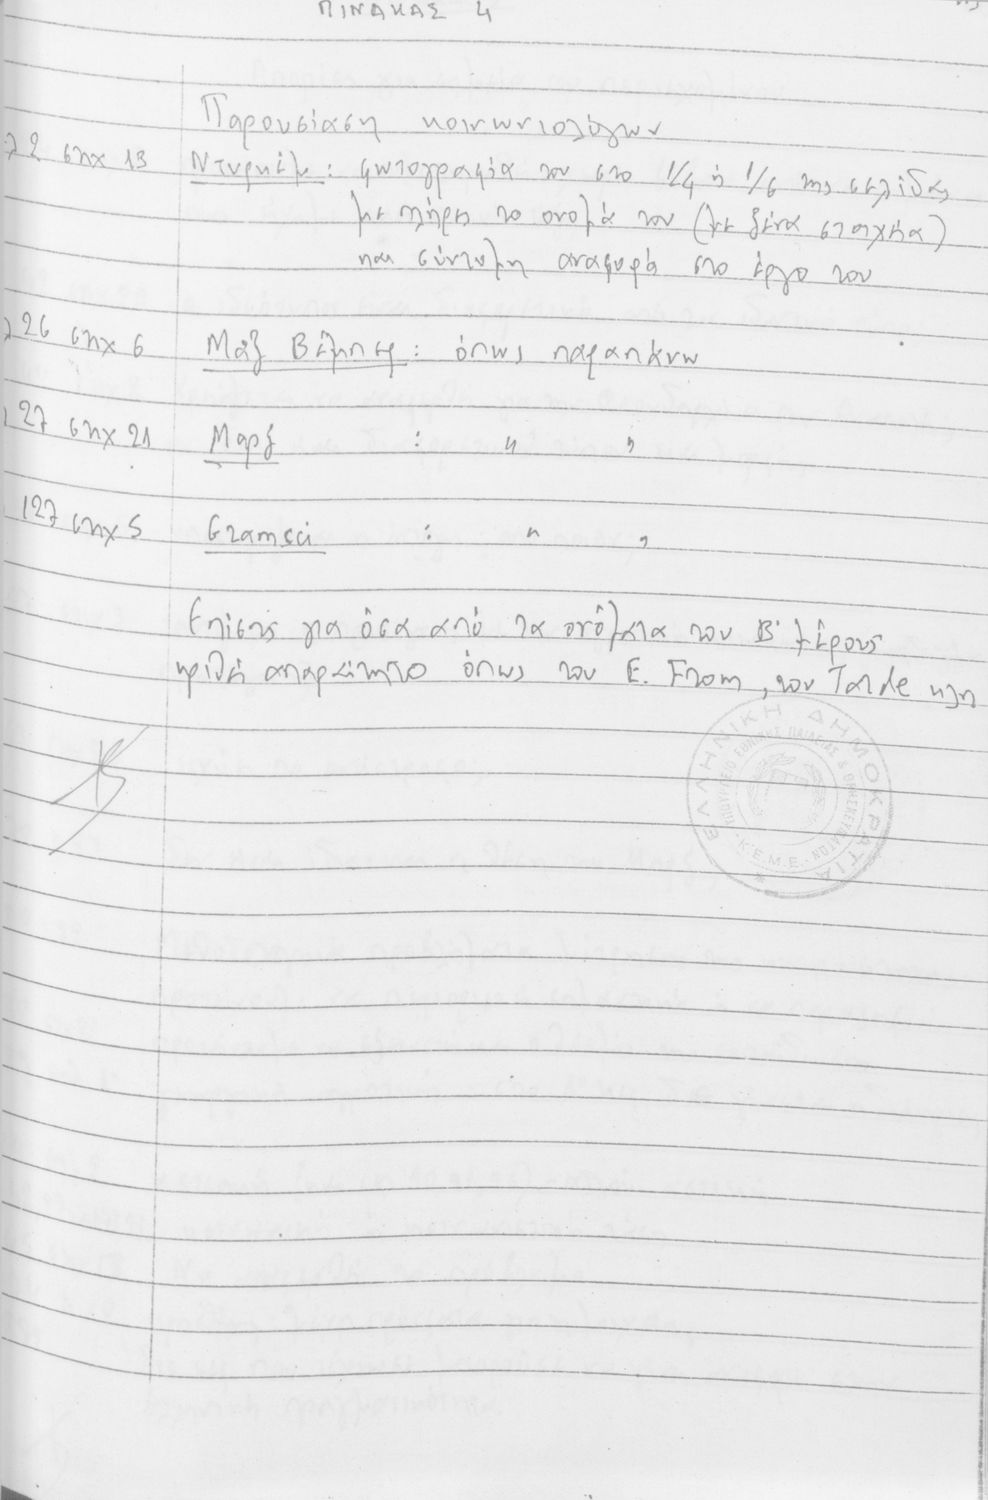 ΠΙΝΑΚΑΣ 4
Παρουσίαση κοινωνιολόγων
2 στιχ 13 Ντυρκέμ : φωτογραφία του στο 1/4 ή 1/6 της σελίδας
με πλήρες το όνομά του (με ξένα στοιχεία)
και σύντομη αναφορά στο έργο του
26 στιχ 6 Μαξ Βέμπερ : όπως παραπάνω
27 στιχ 21 Μαρξ : " "
127 στιχ 5 Gramsci : " "
Επίσης για όσα από τα ονόματα του Β' μέρους
κριθεί απαραίτητο όπως του E. From, του Tarde κλπ
ΕΛΛΗΝΙΚΗ ΔΗΜΟΚΡΑΤΙΑ
ΥΠΟΥΡΓΕΙΟ ΕΘΝΙΚΗΣ ΠΑΙΔΕΙΑΣ & ΘΡΗΣΚΕΥΜΑΤΩΝ
Κ.Ε.Μ.Ε.